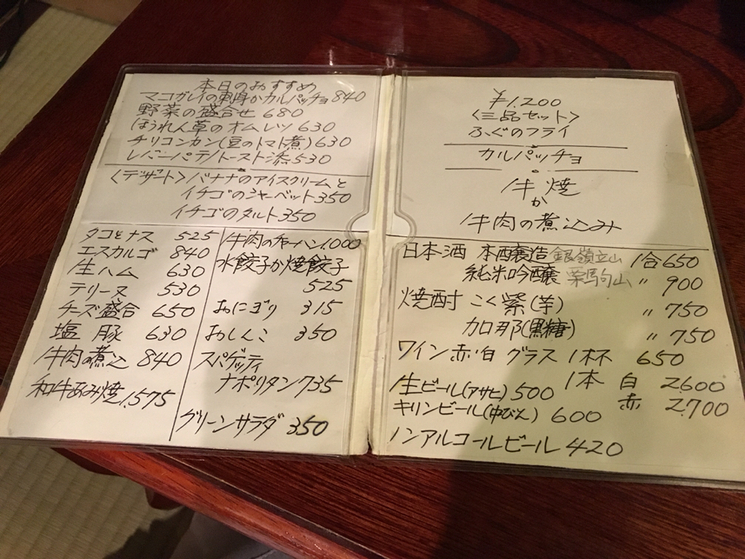 本日のおすすめ
マコガレイの刺身かカルパッチョ 840
野菜の盛合せ 680
ほうれん草のオムレツ 630
チリコンカン(豆のトマト煮) 630
レバーパテ/トースト添 530
〈デザート〉バナナのアイスクリームと
イチゴのシャーベット 350
イチゴのタルト 350
タコとナス 525
エスカルゴ 840
生ハム 630
テリーヌ 530
チーズ盛合 650
塩豚 630
牛肉の煮込 840
和牛あみ焼 1,575
牛肉のチャーハン 1,000
水餃子か焼餃子
525
おにぎり 315
おしんこ 350
スパゲッティ
ナポリタン 735
グリーンサラダ 350
¥1,200
〈三品セット〉
ふぐのフライ
カルパッチョ
牛焼
か
牛肉の煮込み
日本酒 本醸造 銀嶺立山 1合 650
純米吟醸 栗駒山 〃 900
焼酎 こく紫(芋) 〃 750
加那(黒糖) 〃 750
ワイン 赤/白 グラス 1杯 650
1本 白 2600
赤 2,700
生ビール(アサヒ) 500
キリンビール(中びん) 600
ノンアルコールビール 420